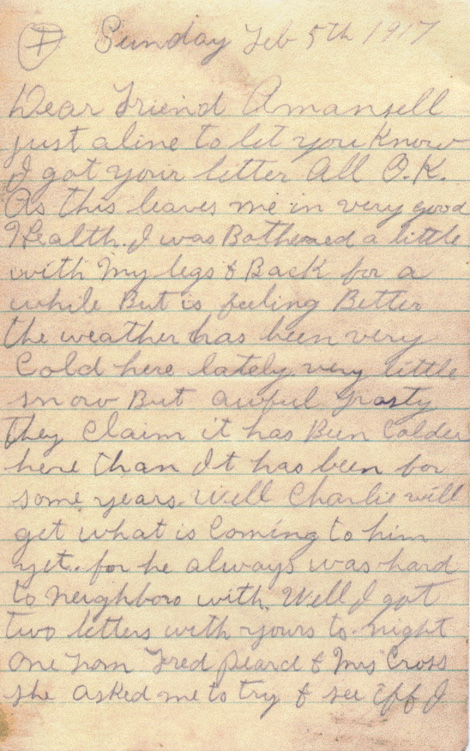 I Sunday Feb 5th 1917
Dear Friend Amansell
just aline to let you Know
I got your letter All O.K.
As this leaves me in very good
Health. I was Bothered a little
with My legs & Back for a
while But is feeling Better
the weather has been very
Cold here lately very little
snow But awful frosty
They Claim it has Bun Colder
here Than It has been for
some years. Well Charlie will
get what is Coming to him
yet. for he always was hard
to neighboro with. Well I got
two letters with yours to-night
one from Fred Peard & Mrs Cross
she asked me to try & see Iff I